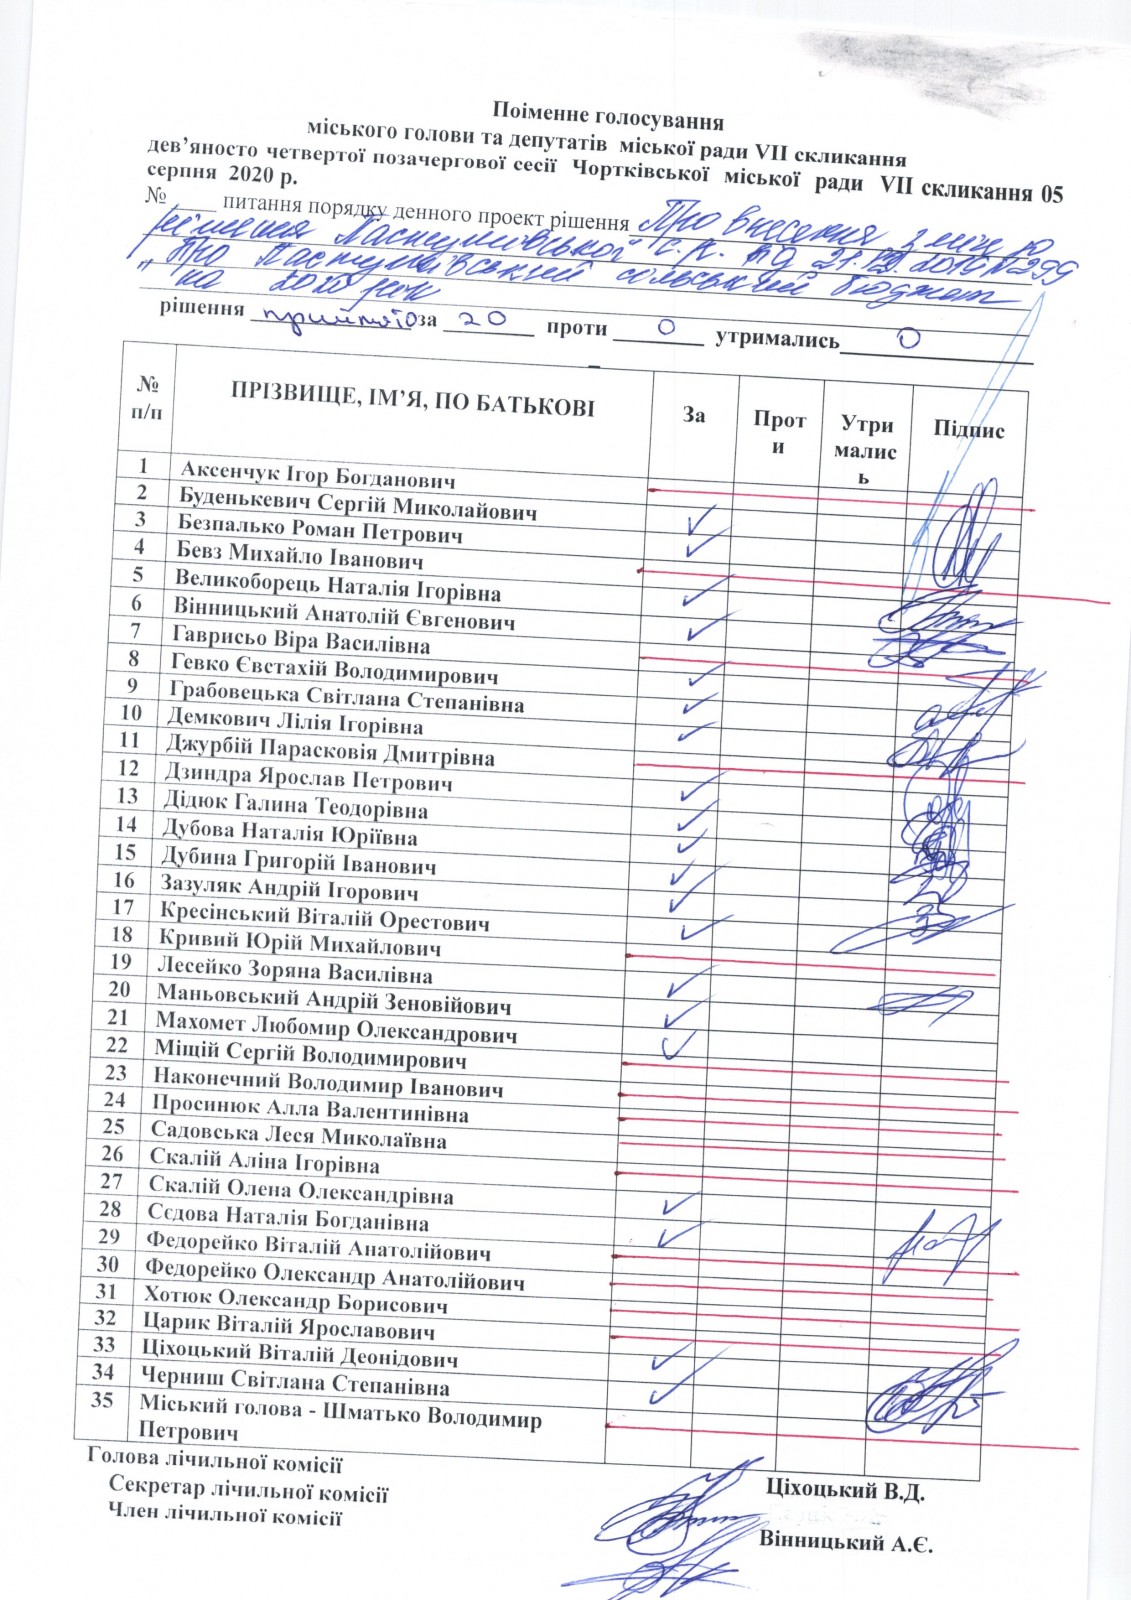 Поіменне голосування
міського голови та депутатів міської ради VII скликання
дев’яносто четвертої позачергової сесії Чортківської міської ради VII скликання 05
серпня 2020 р.
№ ____ питання порядку денного проект рішення Про внесення змін до
рішення Пастушівської с.р. від 21.12.2019 №299
„Про Пастушівський сільський бюджет
на 2020 рік
рішення прийнято за 20 проти 0 утримались 0
№ п/п ПРІЗВИЩЕ, ІМ’Я, ПО БАТЬКОВІ За Проти Утрималис ь Підпис
1 Аксенчук Ігор Богданович
2 Буденькевич Сергій Миколайович
3 Безпалько Роман Петрович
4 Бевз Михайло Іванович
5 Великоборець Наталія Ігорівна
6 Вінницький Анатолій Євгенович
7 Гаврисьо Віра Василівна
8 Гевко Євстахій Володимирович
9 Грабовецька Світлана Степанівна
10 Демкович Лілія Ігорівна
11 Джурбій Парасковія Дмитрівна
12 Дзиндра Ярослав Петрович
13 Дідюк Галина Теодорівна
14 Дубова Наталія Юріївна
15 Дубина Григорій Іванович
16 Зазуляк Андрій Ігорович
17 Кресінський Віталій Орестович
18 Кривий Юрій Михайлович
19 Лесейко Зоряна Василівна
20 Маньовський Андрій Зеновійович
21 Махомет Любомир Олександрович
22 Міщій Сергій Володимирович
23 Наконечний Володимир Іванович
24 Просинюк Алла Валентинівна
25 Садовська Леся Миколаївна
26 Скалій Аліна Ігорівна
27 Скалій Олена Олександрівна
28 Сєдова Наталія Богданівна
29 Федорейко Віталій Анатолійович
30 Федорейко Олександр Анатолійович
31 Хотюк Олександр Борисович
32 Царик Віталій Ярославович
33 Ціхоцький Віталій Деонідович
34 Черниш Світлана Степанівна
35 Міський голова - Шматько Володимир
Петрович
Голова лічильної комісії Ціхоцький В.Д.
Секретар лічильної комісії
Член лічильної комісії Вінницький А.Є.